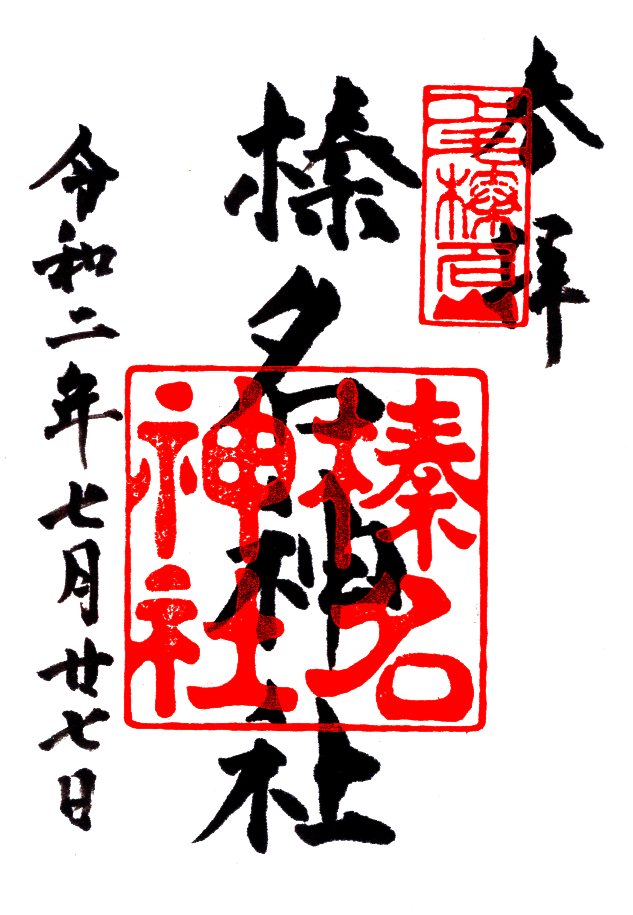 参拝
榛名神社
榛名
神社
令和二年七月廿七日